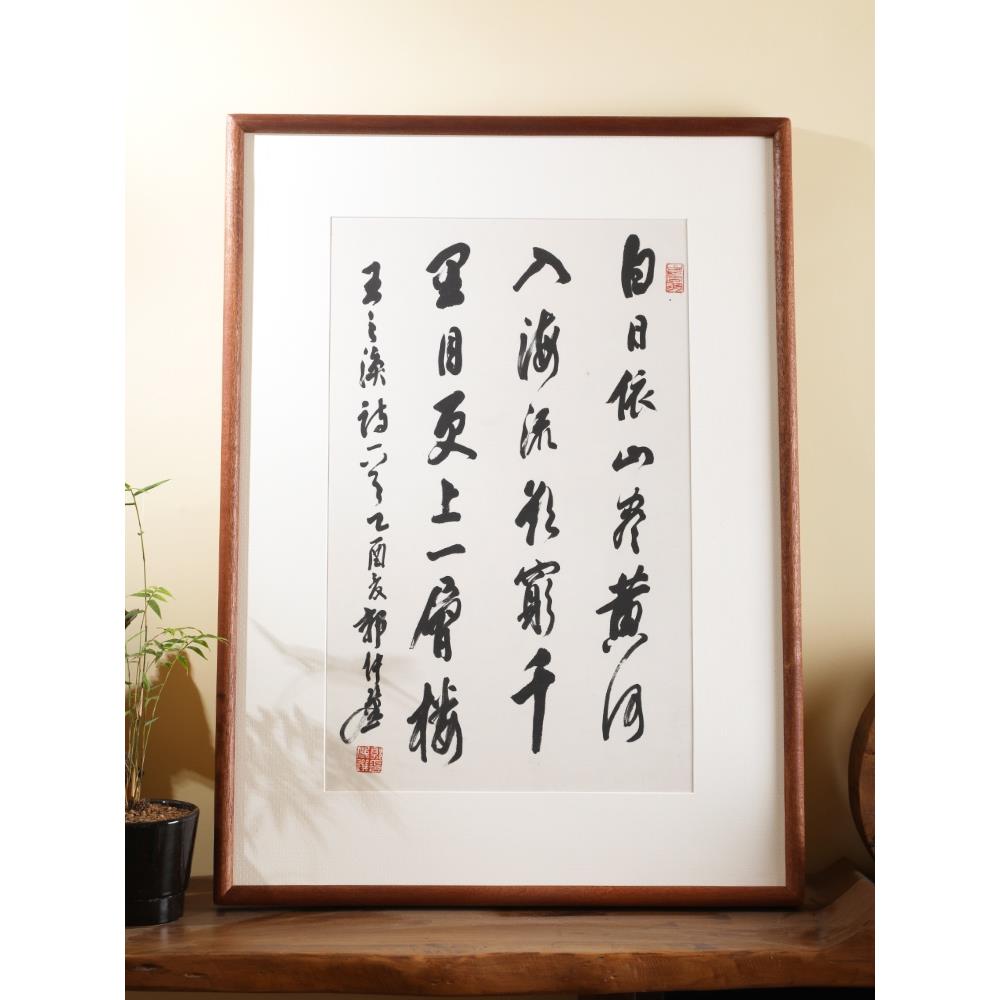 白日依山尽黄河
入海流欲窮千
里目更上一層楼
王之渙詩一首乙酉夏郭仲